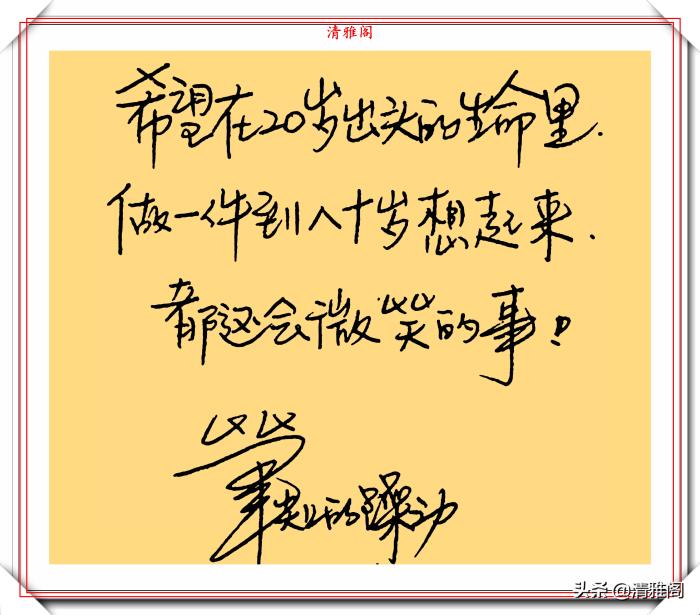 清雅阁
希望在20岁出头的生命里.
做一件到八十岁想起来.
都还会微笑的事!
笔尖上的躁动
头条 @清雅阁